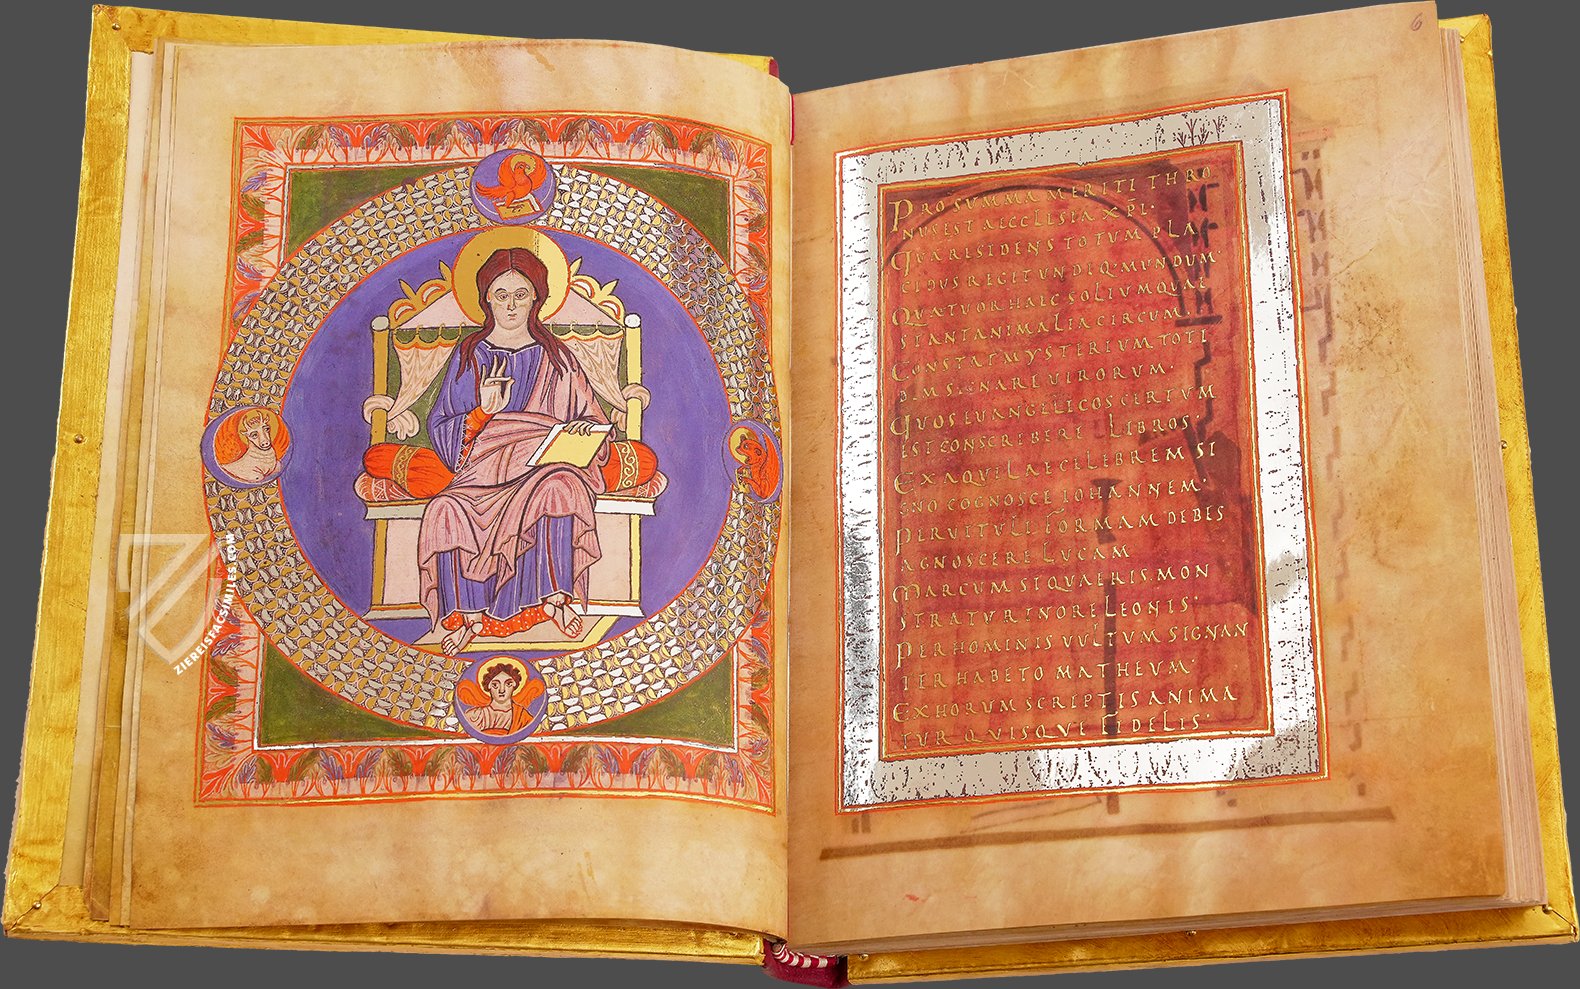 ZIEREISFACSIMILES.COM
6
PRO SUMMA MERITI THRO
NUS EST AECCLESIA XPI·
QUA RESIDENS TOTUM PLA
CIDUS REGIT UNDIQ· MUNDUM·
QUATUOR HAEC SOLIUM QUAE
STANT ANIMALIA CIRCUM·
CONSTAT MYSTERIUM TOTI
DEM SIGNARE UIRORUM·
QUOS EUANGELICOS CERTUM
EST CONSCRIBERE LIBROS·
EX AQUILA ECELEBREM SI
GNO COGNOSCE IOHANNEM·
PER UITULI FORMAM DEBES
AGNOSCERE LUCAM
MARCUM SI QUAERIS· MON
STRATUR IN ORE LEONIS·
PER HOMINIS UULTUM SIGNAN
TER HABETO MATHEUM·
EX HORUM SCRIPTIS ANIMA
TUR QUISQUE FIDELIS·